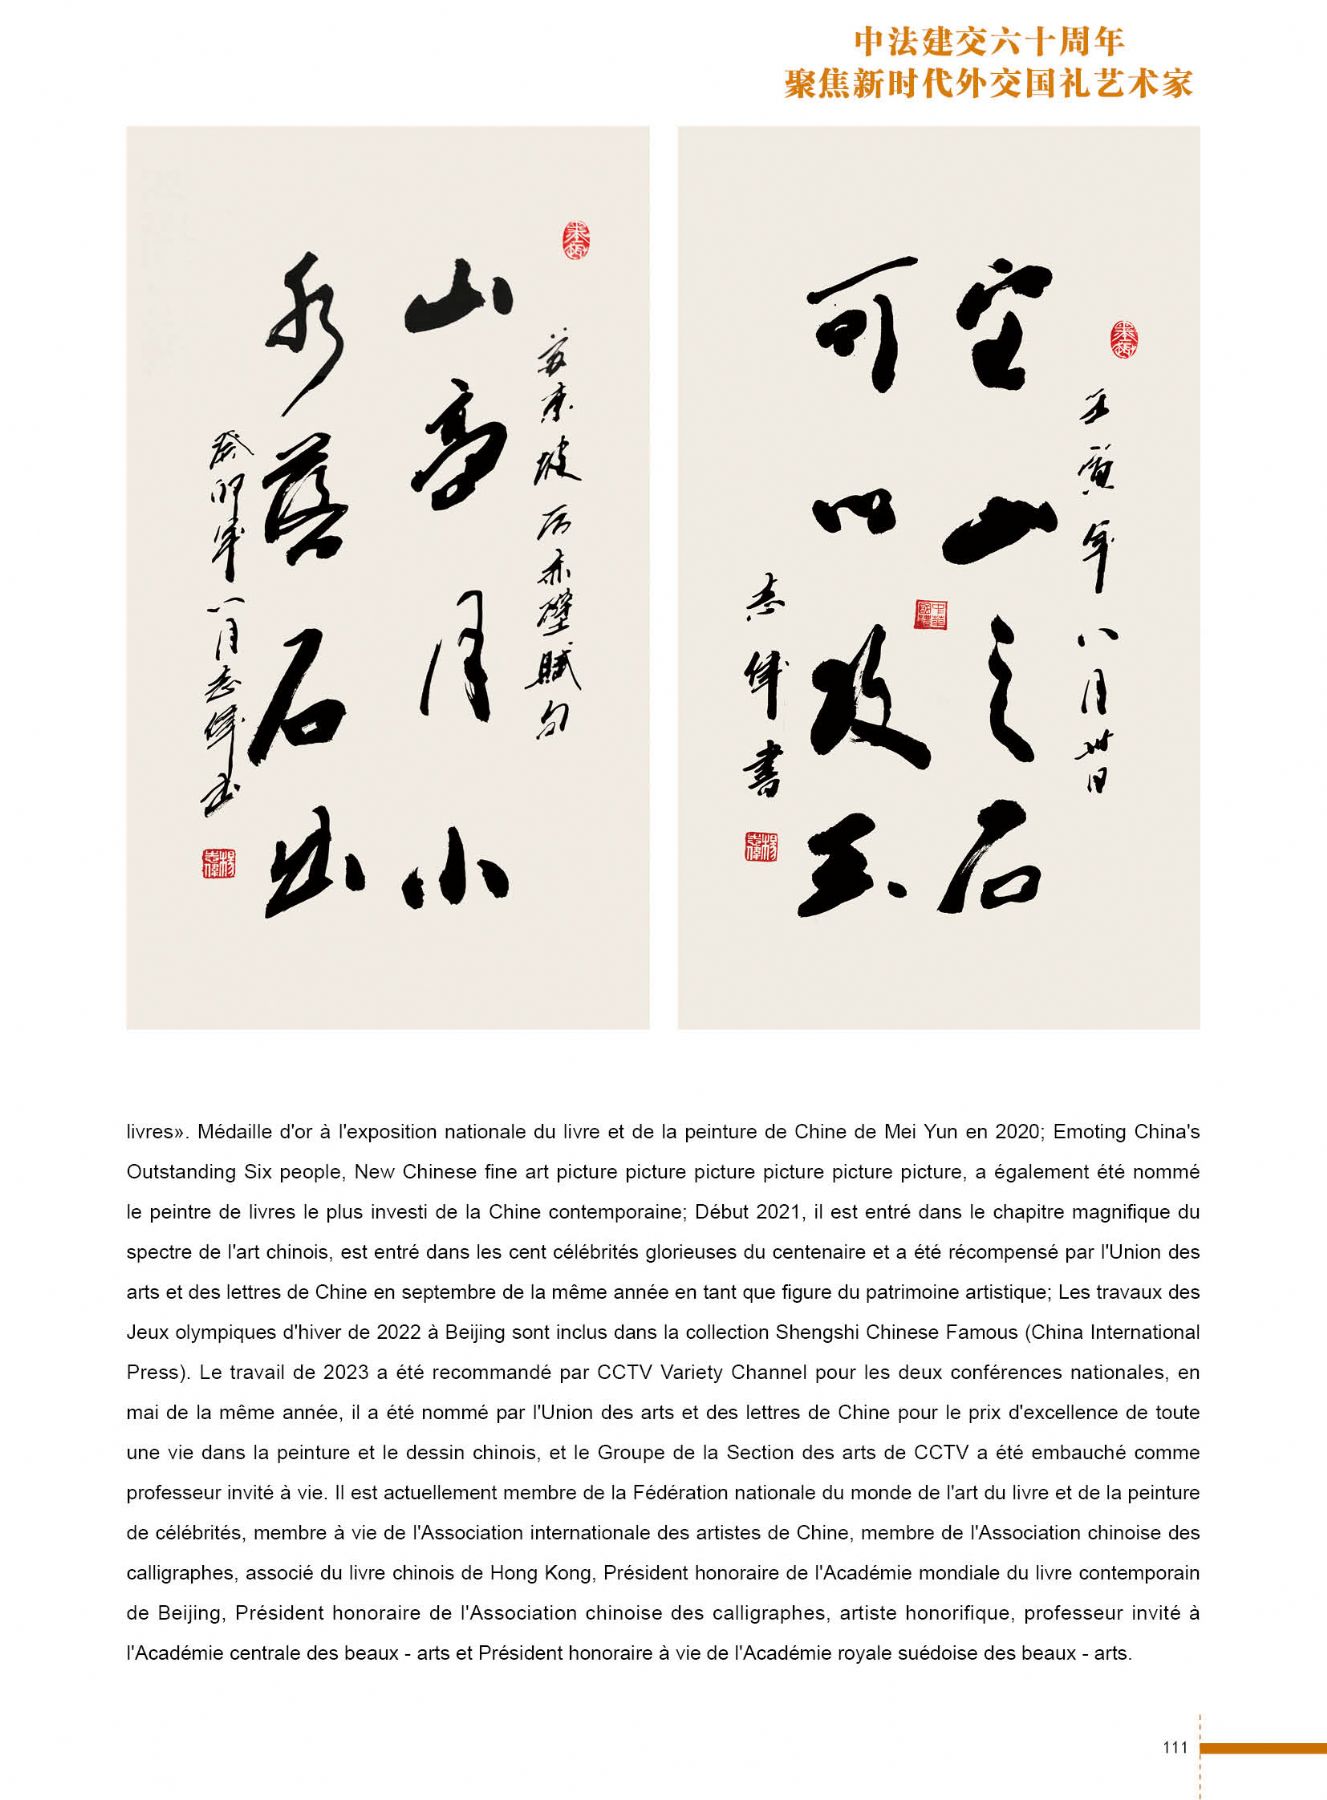 中法建交六十周年
聚焦新时代外交国礼艺术家
苏东坡后赤壁赋句
山高月小
水落石出
癸卯年八月志伟书
壬寅年八月廿日
它山之石
可以攻玉
志伟书
livres». Médaille d'or à l'exposition nationale du livre et de la peinture de Chine de Mei Yun en 2020; Emoting China's
Outstanding Six people, New Chinese fine art picture picture picture picture picture picture, a également été nommé
le peintre de livres le plus investi de la Chine contemporaine; Début 2021, il est entré dans le chapitre magnifique du
spectre de l'art chinois, est entré dans les cent célébrités glorieuses du centenaire et a été récompensé par l'Union des
arts et des lettres de Chine en septembre de la même année en tant que figure du patrimoine artistique; Les travaux des
Jeux olympiques d'hiver de 2022 à Beijing sont inclus dans la collection Shengshi Chinese Famous (China International
Press). Le travail de 2023 a été recommandé par CCTV Variety Channel pour les deux conférences nationales, en
mai de la même année, il a été nommé par l'Union des arts et des lettres de Chine pour le prix d'excellence de toute
une vie dans la peinture et le dessin chinois, et le Groupe de la Section des arts de CCTV a été embauché comme
professeur invité à vie. Il est actuellement membre de la Fédération nationale du monde de l'art du livre et de la peinture
de célébrités, membre à vie de l'Association internationale des artistes de Chine, membre de l'Association chinoise des
calligraphes, associé du livre chinois de Hong Kong, Président honoraire de l'Académie mondiale du livre contemporain
de Beijing, Président honoraire de l'Association chinoise des calligraphes, artiste honorifique, professeur invité à
l'Académie centrale des beaux - arts et Président honoraire à vie de l'Académie royale suédoise des beaux - arts.
111